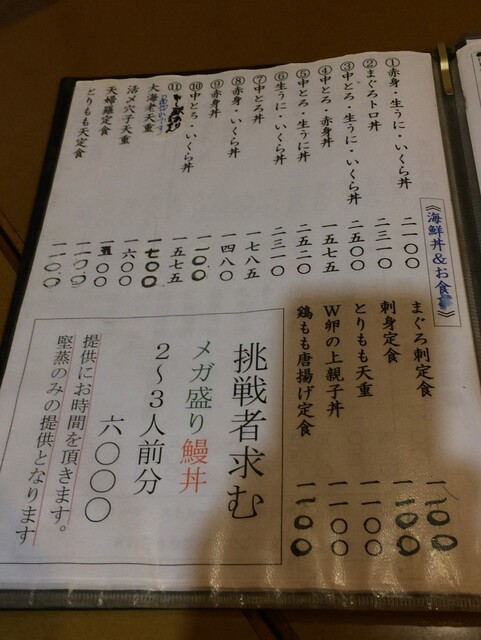 《海鮮丼&お食
①赤身・生うに・いくら丼 二一〇〇
②まぐろトロ丼 二三一〇
③中とろ・生うに・いくら丼 二五〇〇
④中とろ・赤身丼 一五七五
⑤中とろ・生うに丼 二五二〇
⑥生うに・いくら丼 二三一〇
⑦中とろ丼 一七八五
⑧赤身・いくら丼 一四八〇
⑨赤身丼 一一〇〇
⑩中とろ・いくら丼 一五七五
⑪
大海老天重 一七〇〇
活〆穴子天重 一六〇〇
天婦羅定食 一五〇〇
とりもも天定食 一一〇〇
一一〇〇
まぐろ刺定食 一一〇〇
刺身定食 一一〇〇
とりもも天重 一一〇〇
W卵の上親子丼 一一〇〇
鶏もも唐揚げ定食 一一〇〇
挑戦者求む
メガ盛り鰻丼
2〜3人前分
六〇〇〇
提供にお時間を頂きます。
堅蒸のみの提供となります